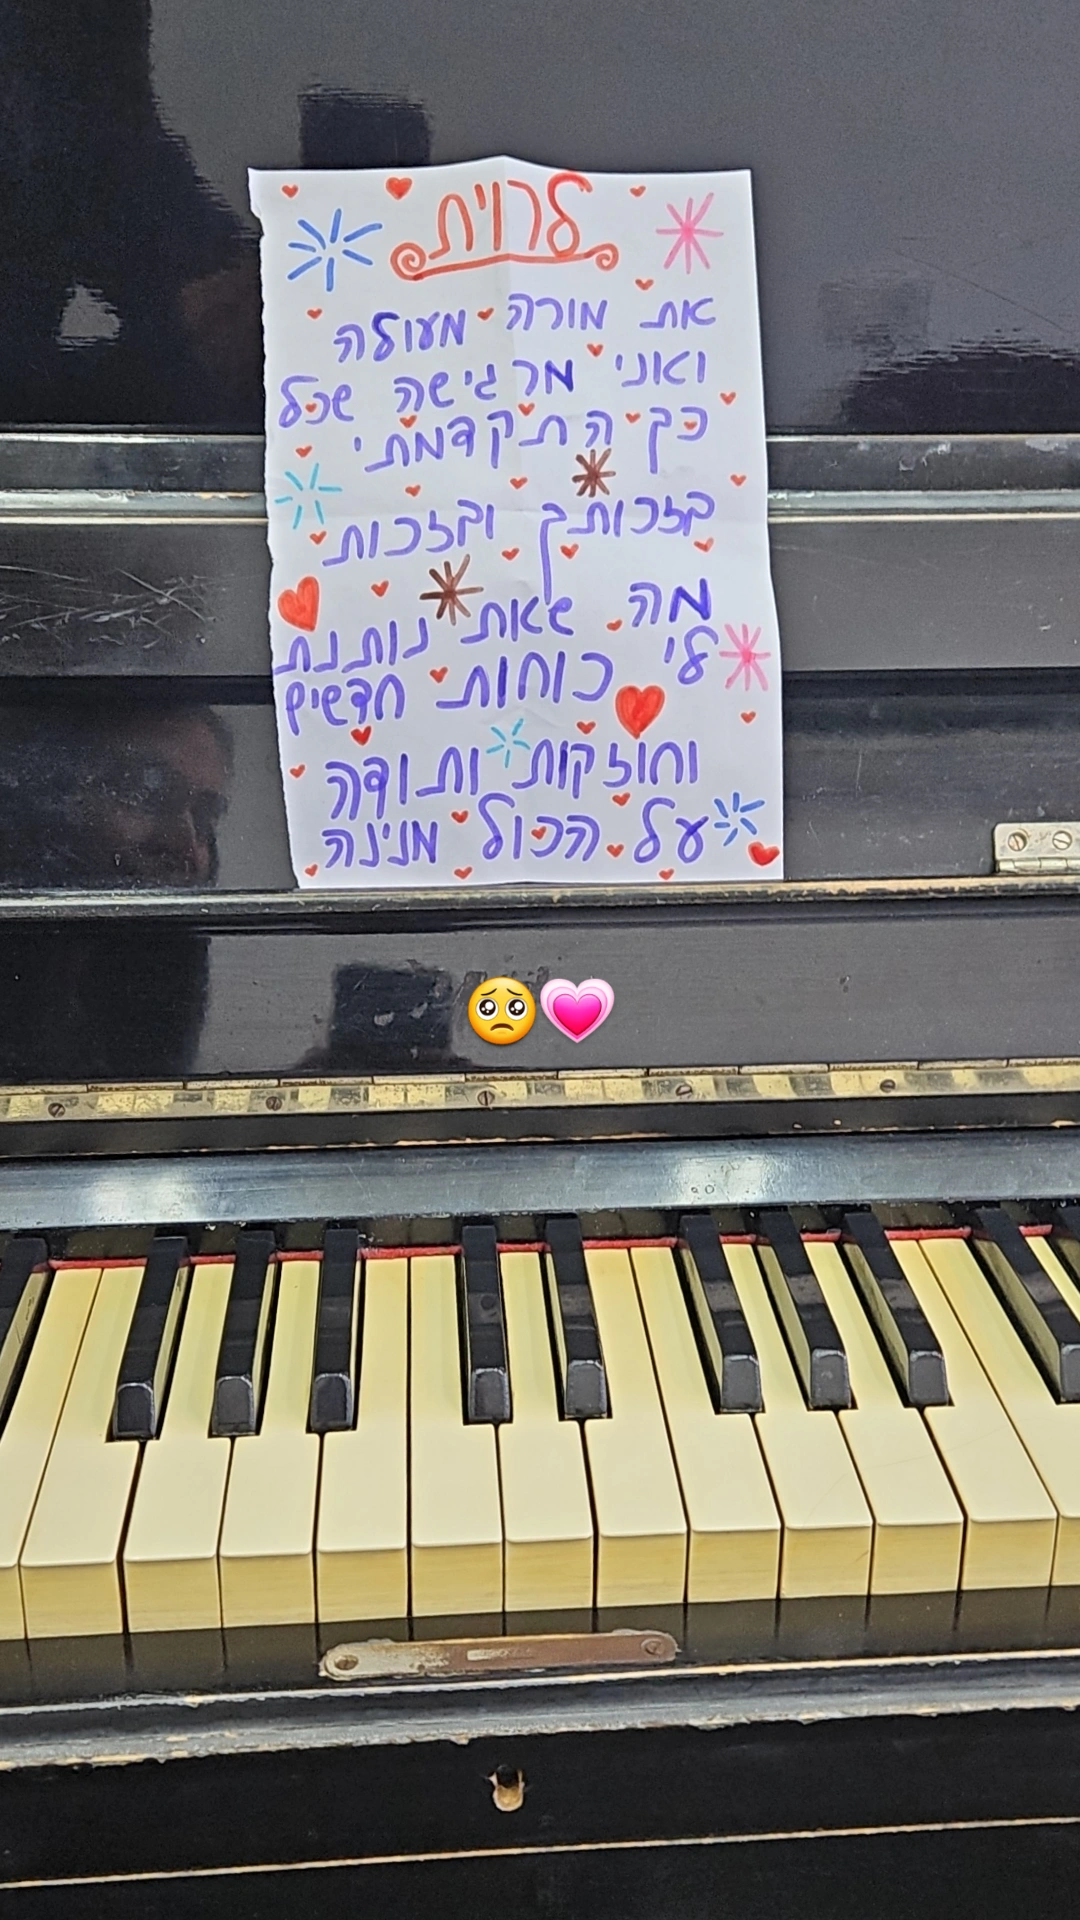 לרוית
את מורה מעולה
ואני מרגישה שכל
כך התקדמתי
בזכותך ובזכות
מה שאת נותנת
לי כוחות חדשים
וחוזקות ותודה
על הכול מנינה